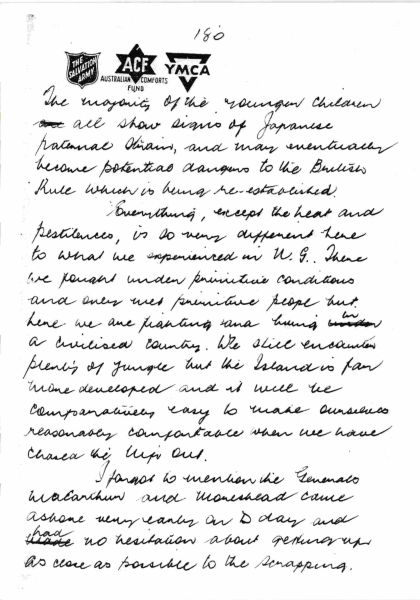 180
THE SALVATION ARMY
ACF
AUSTRALIAN COMFORTS FUND
YMCA
The majority of the younger children
are all show signs of Japanese
paternal strain, and may eventually
become potential dangers to the British
Rule which is being re-established.
Everything, except the heat and
pestilences, is so very different here
to what we experienced in N.G.. There
we fought under primitive conditions
and only met primitive people but
here we are fighting and living under in
a civilised country. We still encounter
plenty of jungle but the Island is far
more developed and it will be
comparatively easy to make ourselves
reasonably comfortable when we have
chased the Nips out.
I forgot to mention the Generals
MacArthur and Moreshead came
ashore very early on D day and
made had no hesitation about getting up
as close as possible to the scrapping.